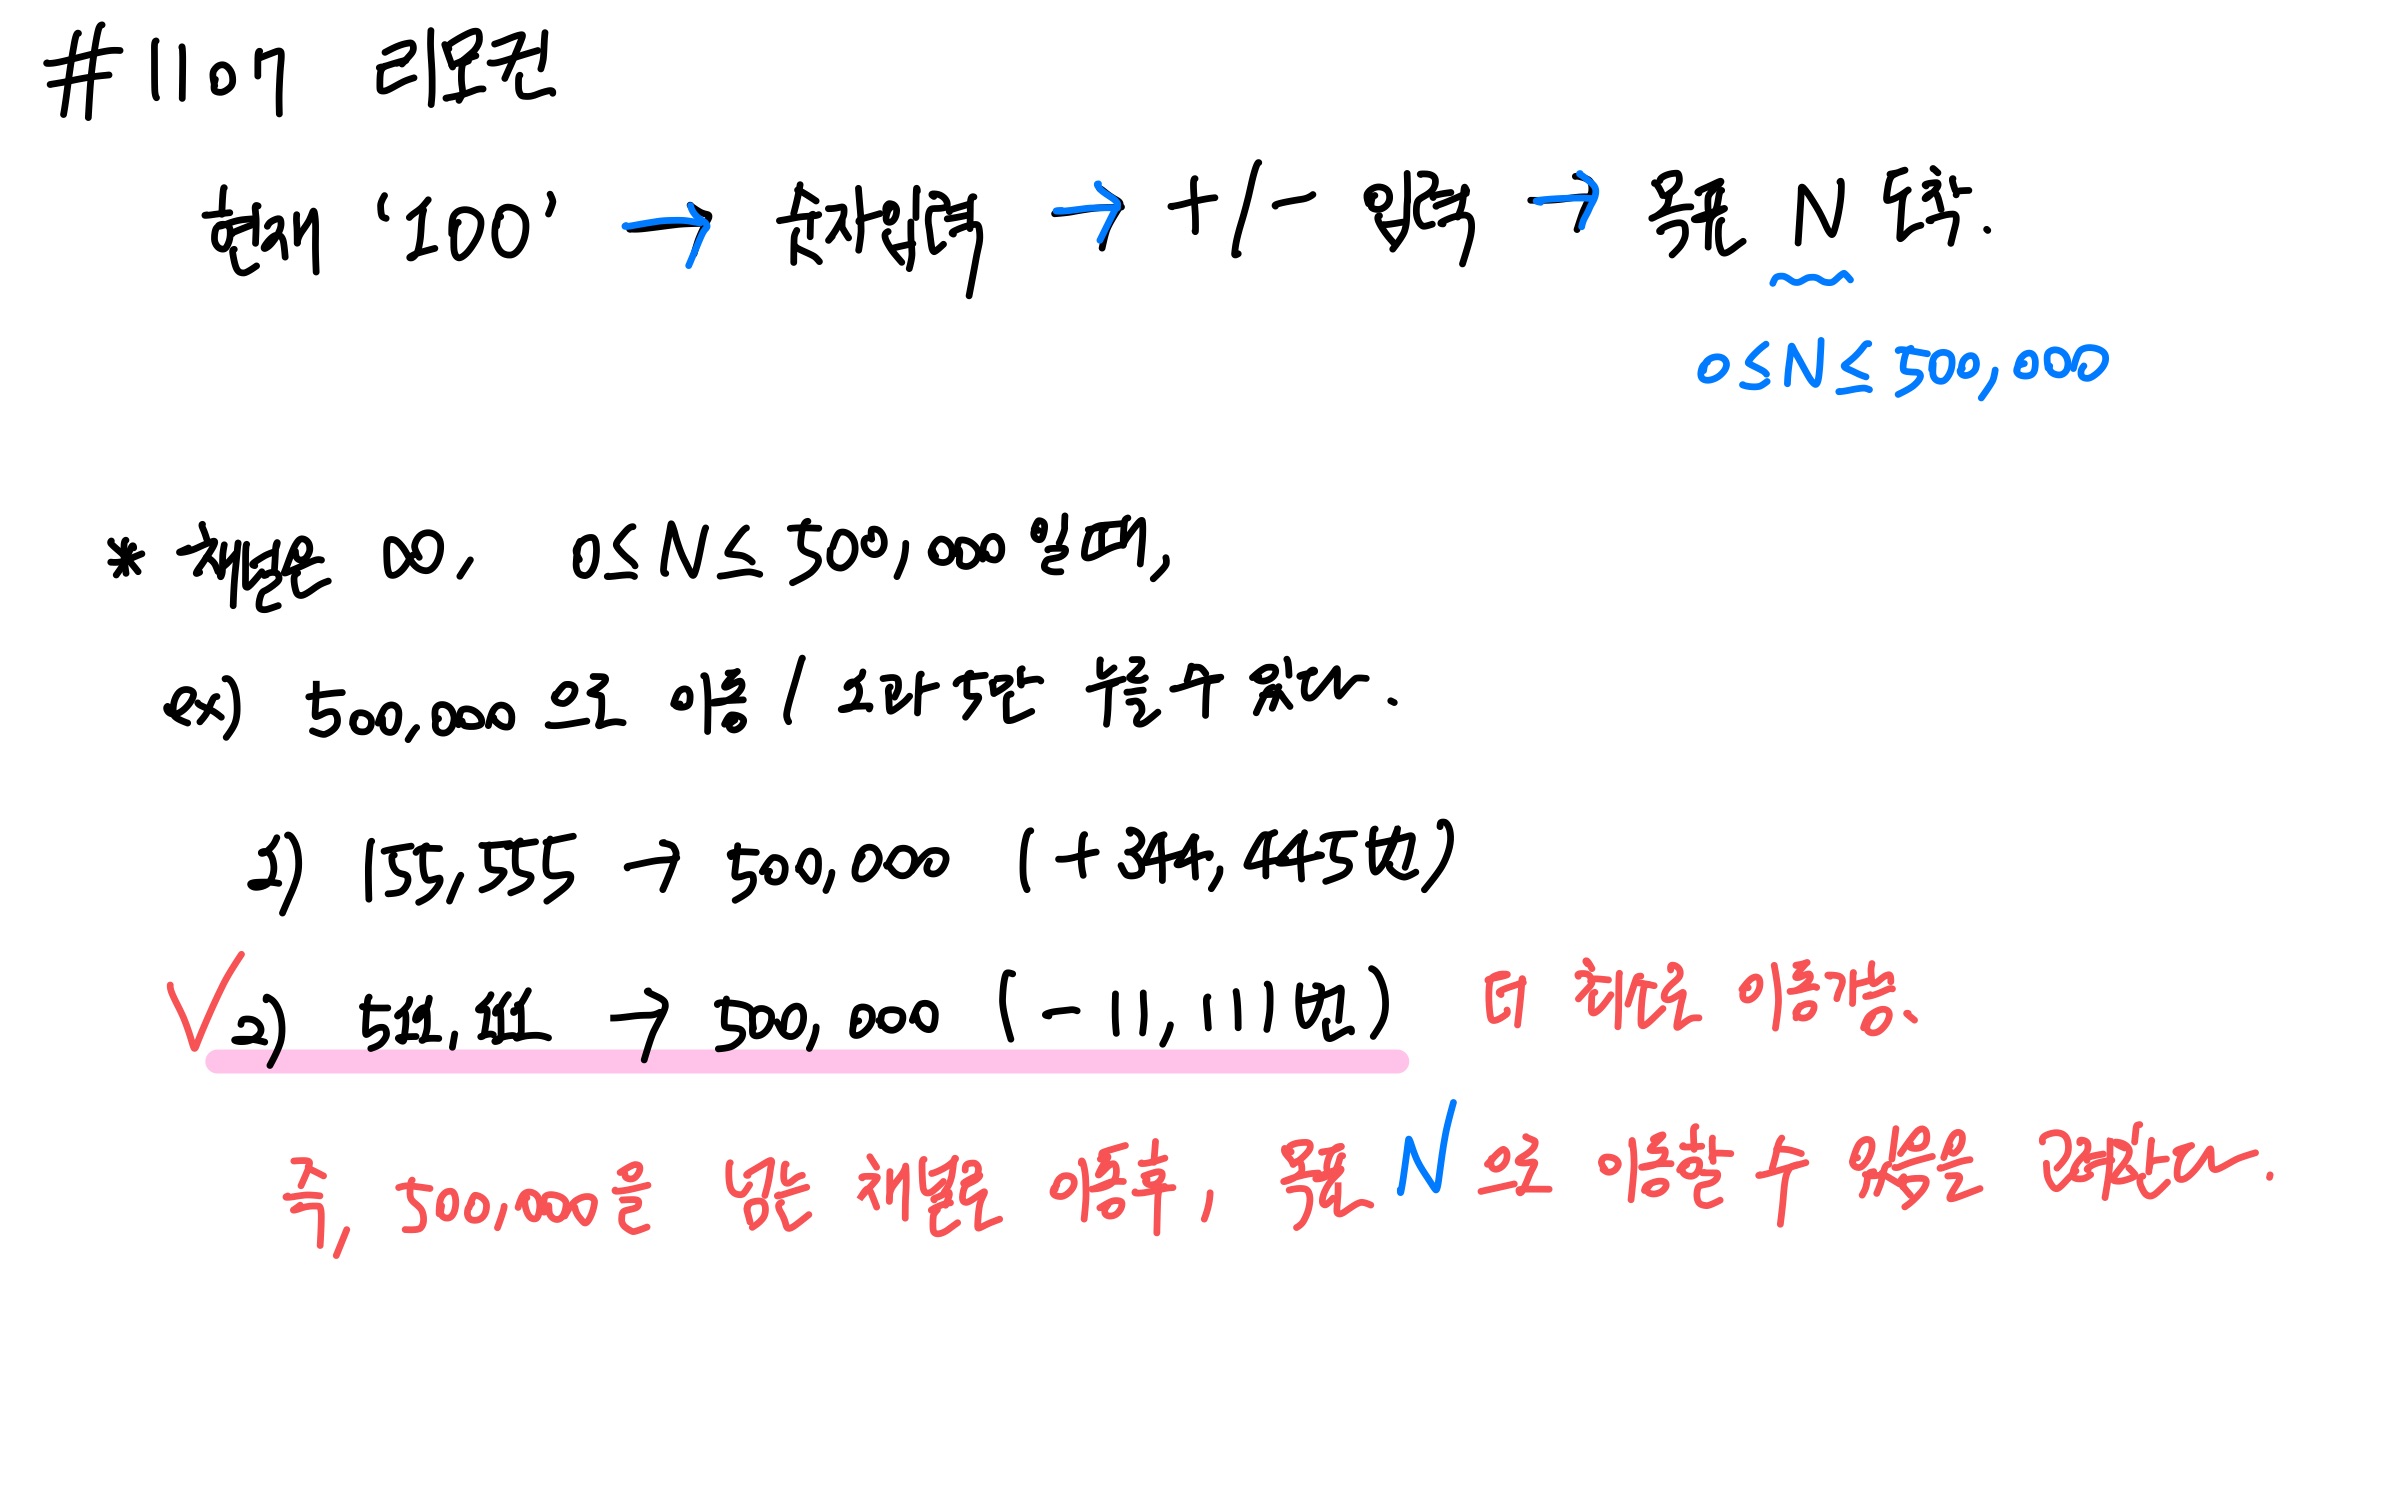 #1107 리모컨
현재 '100' → 숫자입력 → +/- 입력 → 목표 N 도착.
0≤N≤500,000
* 채널은 ∞, 0≤N≤500,000 일때,
ex) 500,000 으로 이동 / 5만 누를 수 있다.
1) 155,555 → 500,000 (+344,445번)
2) 511,111 → 500,000 (-11,111번) 더 채널로 이동가능.
즉, 500,000을 넘는 채널로 이동후, 목표 N 으로 이동할 수 있음을 고려한다.